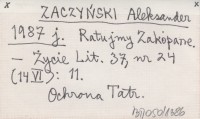 x x
ZACZYŃSKI Aleksander
1987 j. Ratujmy Zakopane.
– Życie Lit. 37, nr 24
(14.VI): 11.
Ochrona Tatr.